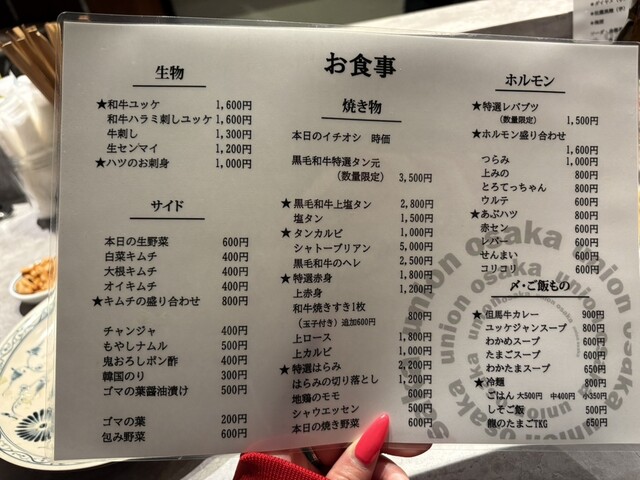 お食事
生物
★和牛ユッケ 1,600円
和牛ハラミ刺しユッケ 1,600円
牛刺し 1,300円
生センマイ 1,200円
★ハツのお刺身 1,000円
サイド
本日の生野菜 600円
白菜キムチ 400円
大根キムチ 400円
オイキムチ 400円
★キムチの盛り合わせ 800円
チャンジャ 400円
もやしナムル 500円
鬼おろしポン酢 400円
韓国のり 300円
ゴマの葉醤油漬け 500円
ゴマの葉 200円
包み野菜 600円
焼き物
本日のイチオシ 時価
黒毛和牛特選タン元
(数量限定) 3,500円
★黒毛和牛上塩タン 2,800円
塩タン 1,500円
★タンカルビ 1,000円
シャトーブリアン 5,000円
黒毛和牛のヘレ 2,500円
★特選赤身 1,800円
上赤身 1,200円
和牛焼きすき1枚 800円
(玉子付き)追加600円
上ロース 1,800円
上カルビ 1,000円
★特選はらみ 2,200円
はらみの切り落とし 1,200円
地鶏のモモ 600円
シャウエッセン 500円
本日の焼き野菜 600円
ホルモン
★特選レバブツ
(数量限定) 1,500円
★ホルモン盛り合わせ
1,600円
つらみ 1,000円
上みの 800円
とろてっちゃん 800円
ウルテ 600円
★あぶハツ 800円
赤セン 600円
レバー 600円
せんまい 600円
コリコリ 600円
〆・ご飯もの
★但馬牛カレー 900円
ユッケジャンスープ 800円
わかめスープ 600円
たまごスープ 600円
わかたまスープ 650円
★冷麺 800円
ごはん 大500円 中400円 小350円
しそご飯 500円
龍のたまごTKG 650円
union osaka union
union osaka